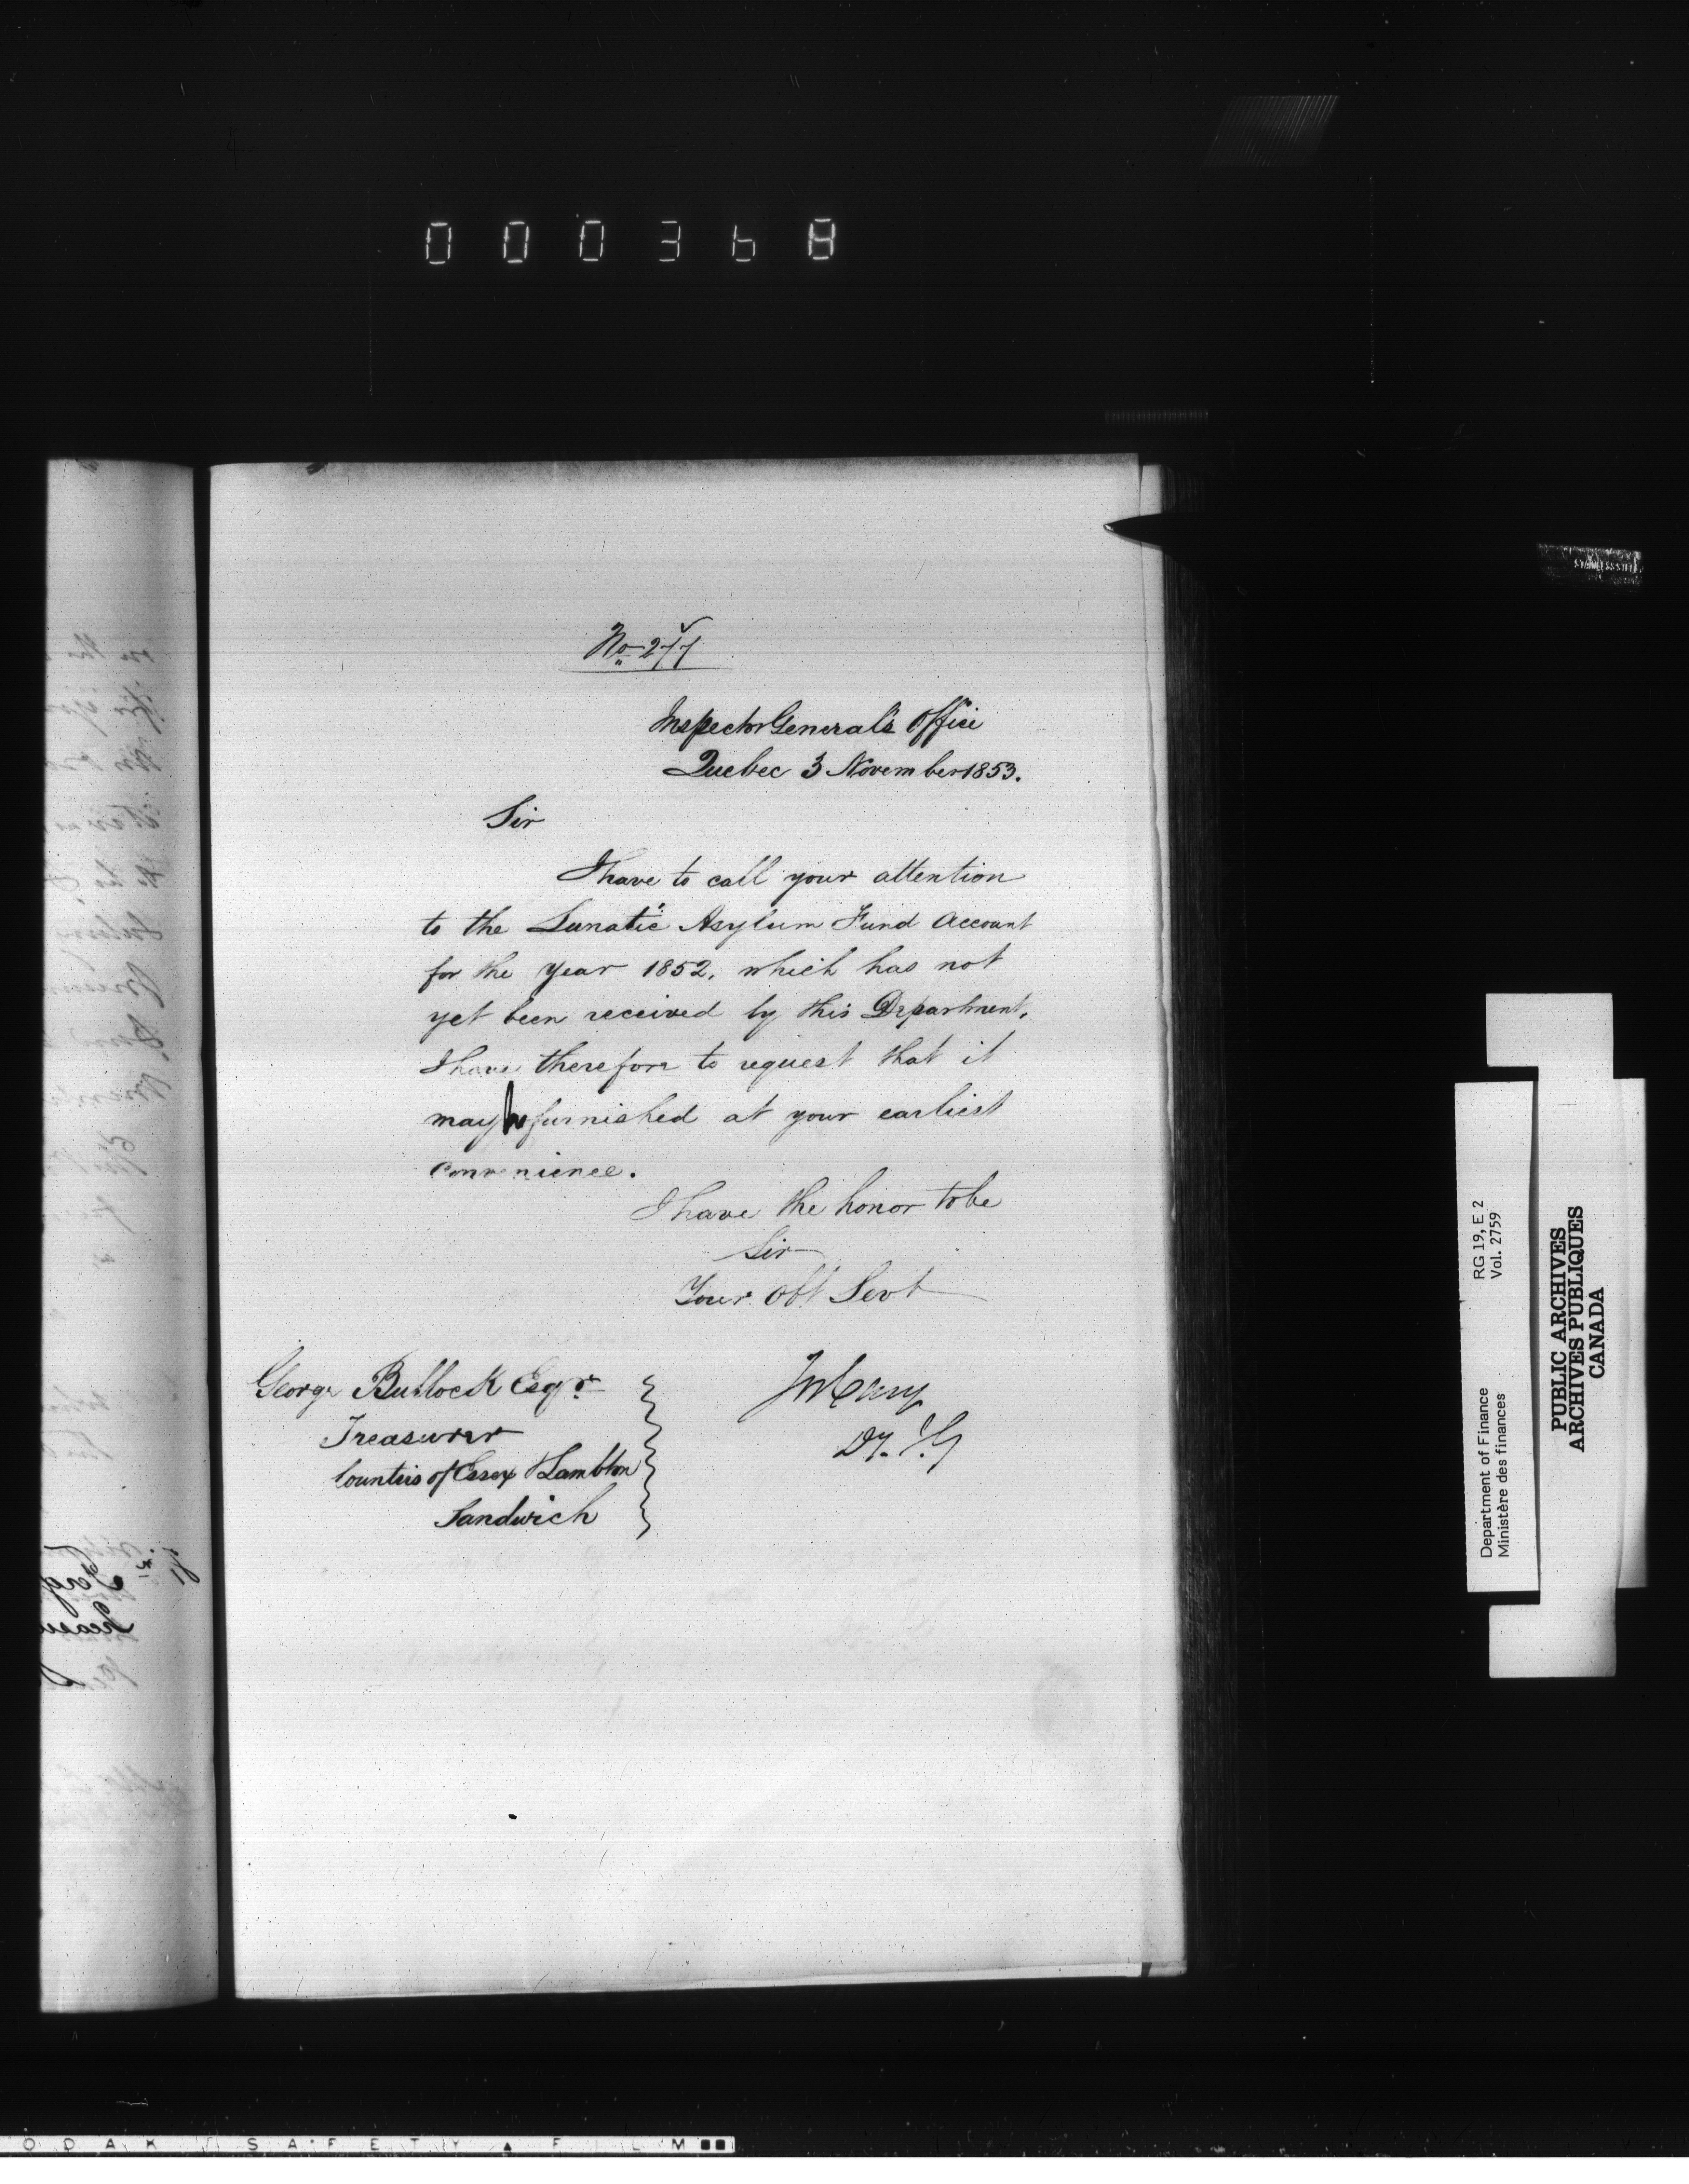 000368
No 277
Inspector General's Office
Quebec 3 November 1853.
Sir
I have to call your attention
to the Lunatic Asylum Fund Account
for the Year 1852, which has not
yet been received by this Department,
I have therefore to request that it
may be furnished at your earliest
convenience.
I have the honor to be
Sir
Your Obt Servt
George Bullock Esqr
Treasurer
Counties of Essex & Lambton
Sandwich
Jos Cary
Dy. I. G
Department of Finance RG 19, E 2
Ministère des finances Vol. 2759
PUBLIC ARCHIVES
ARCHIVES PUBLIQUES
CANADA
ODAK SAFETY FILM